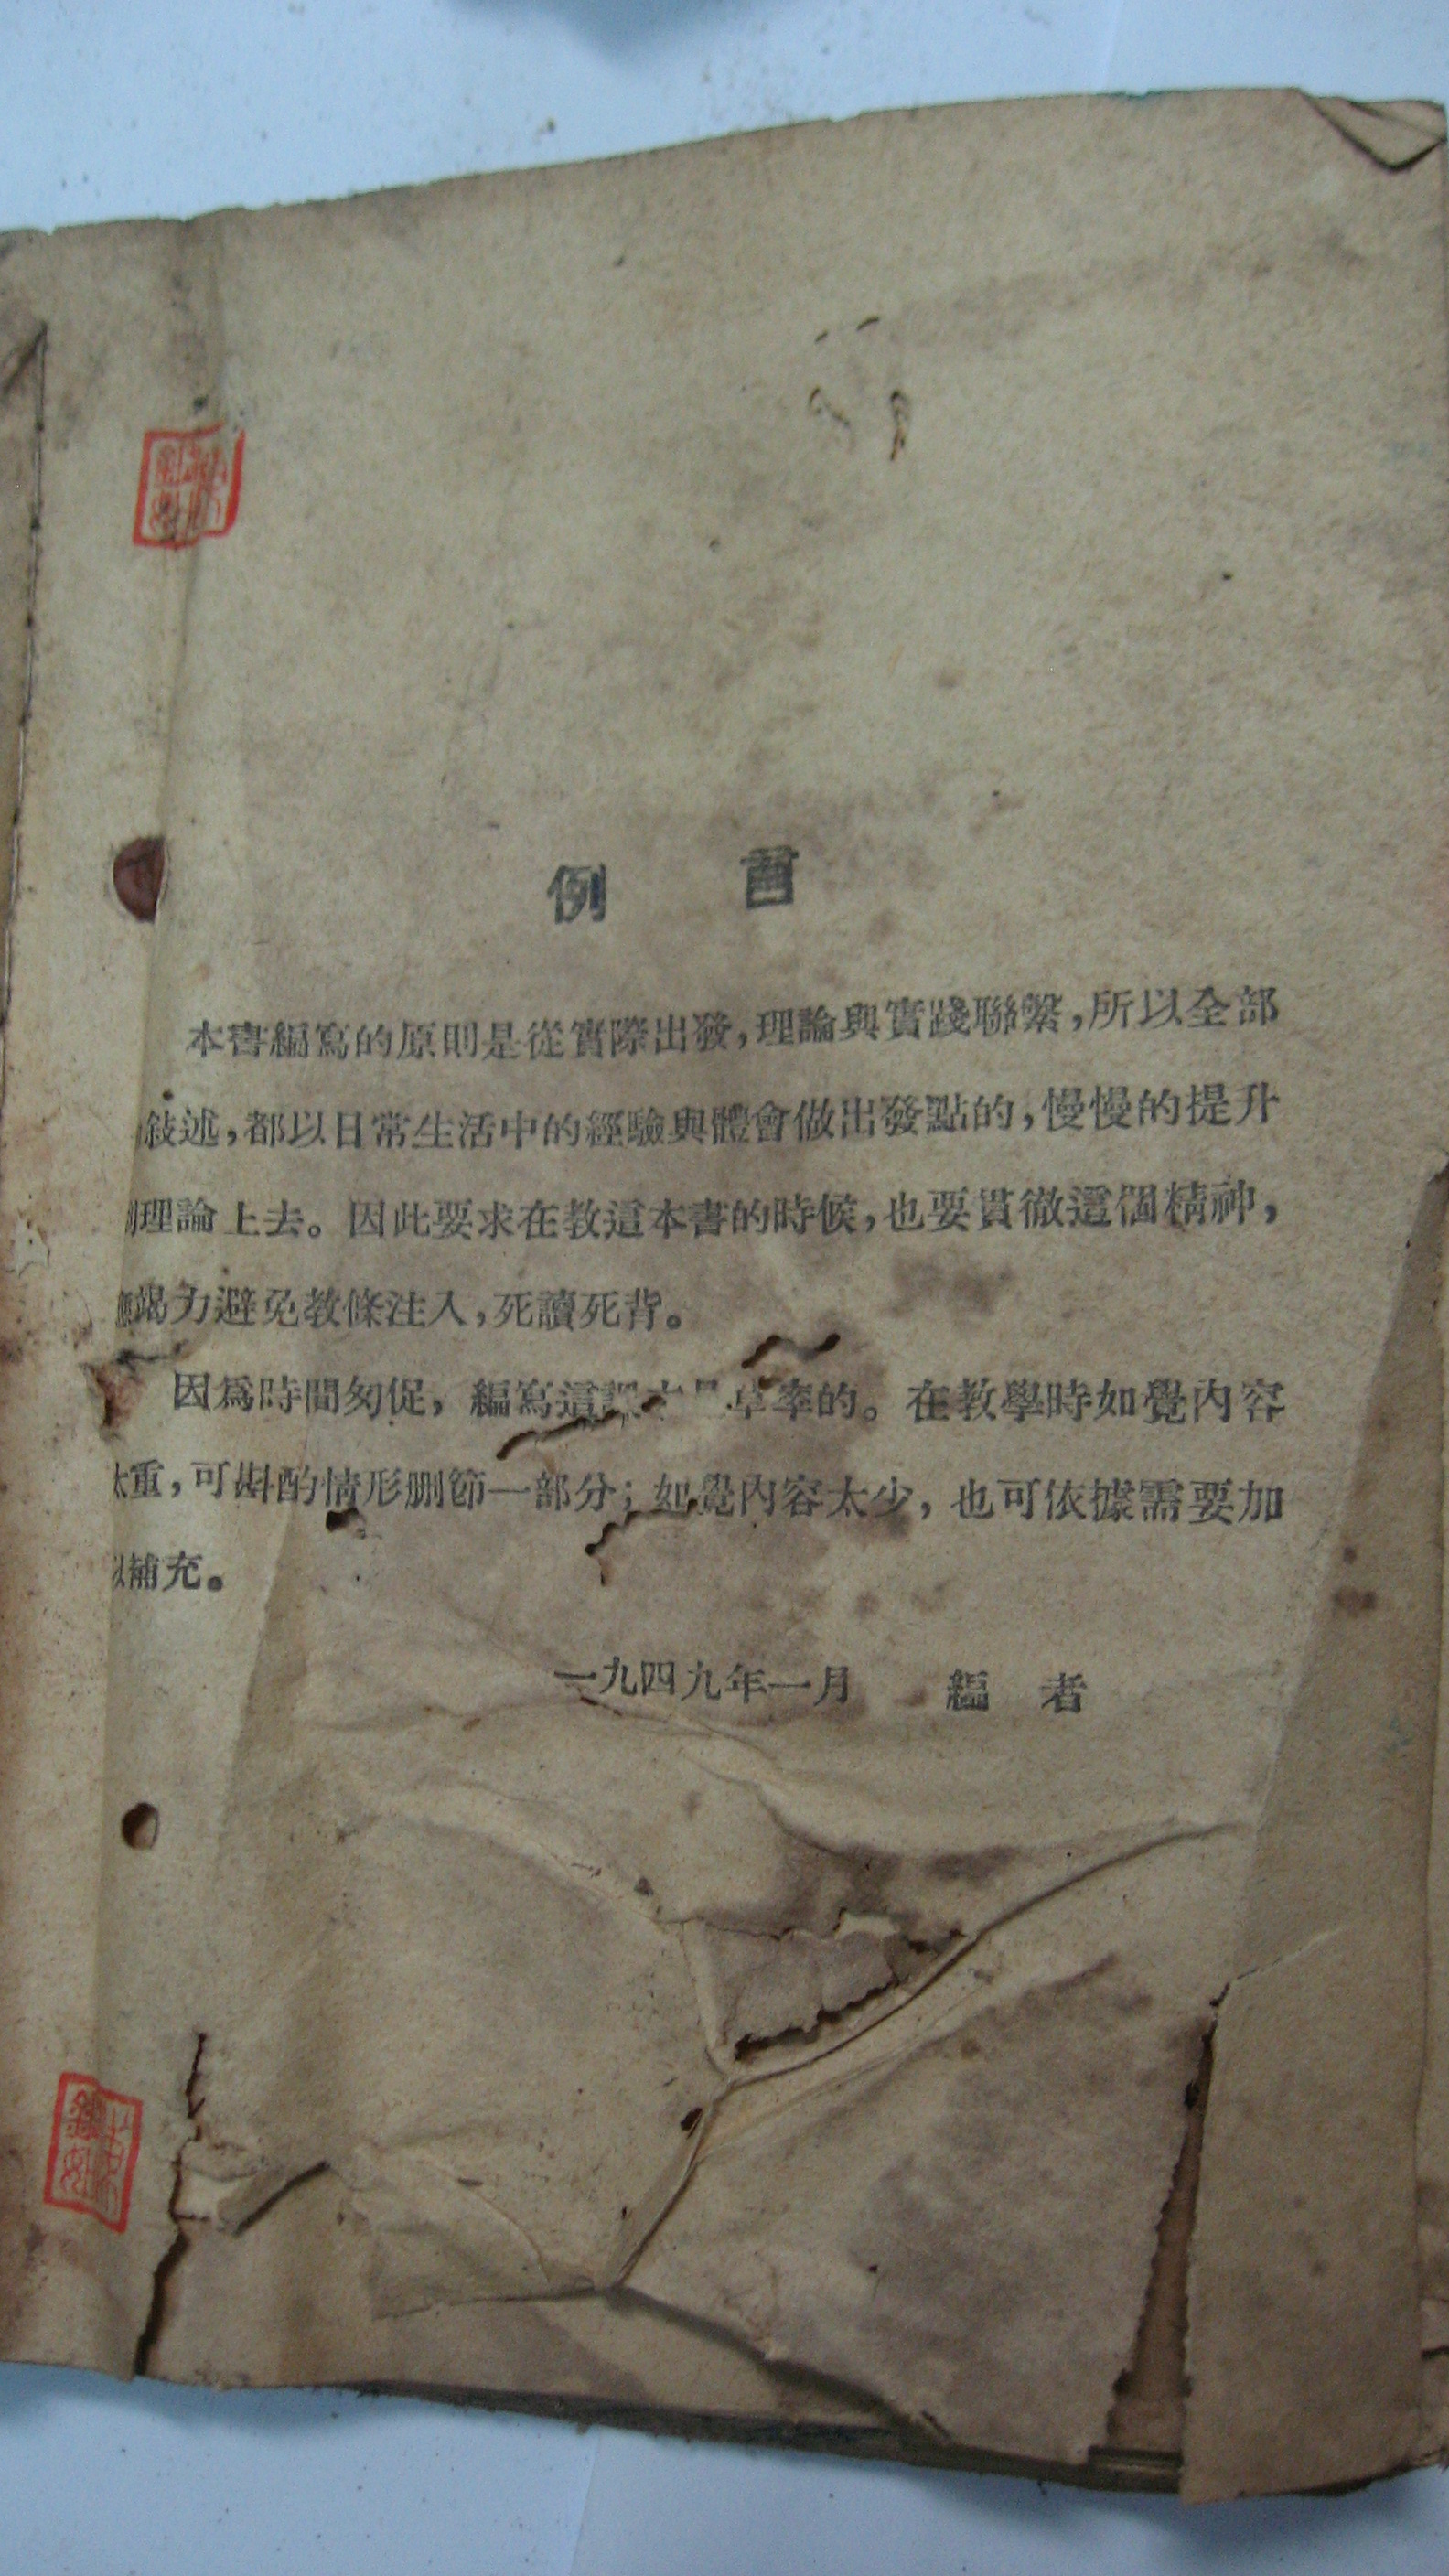 例 言
本書編寫的原則是從實際出發,理論與實踐聯繫,所以全部
敍述,都以日常生活中的經驗與體會做出發點的,慢慢的提升
理論上去。因此要求在教這本書的時候,也要貫徹這個精神,
竭力避免教條注入,死讀死背。
因爲時間匆促,編寫這 草率的。在教學時如覺內容
重,可斟酌情形删節一部分;如覺內容太少,也可依據需要加
補充。
一九四九年一月 編 者